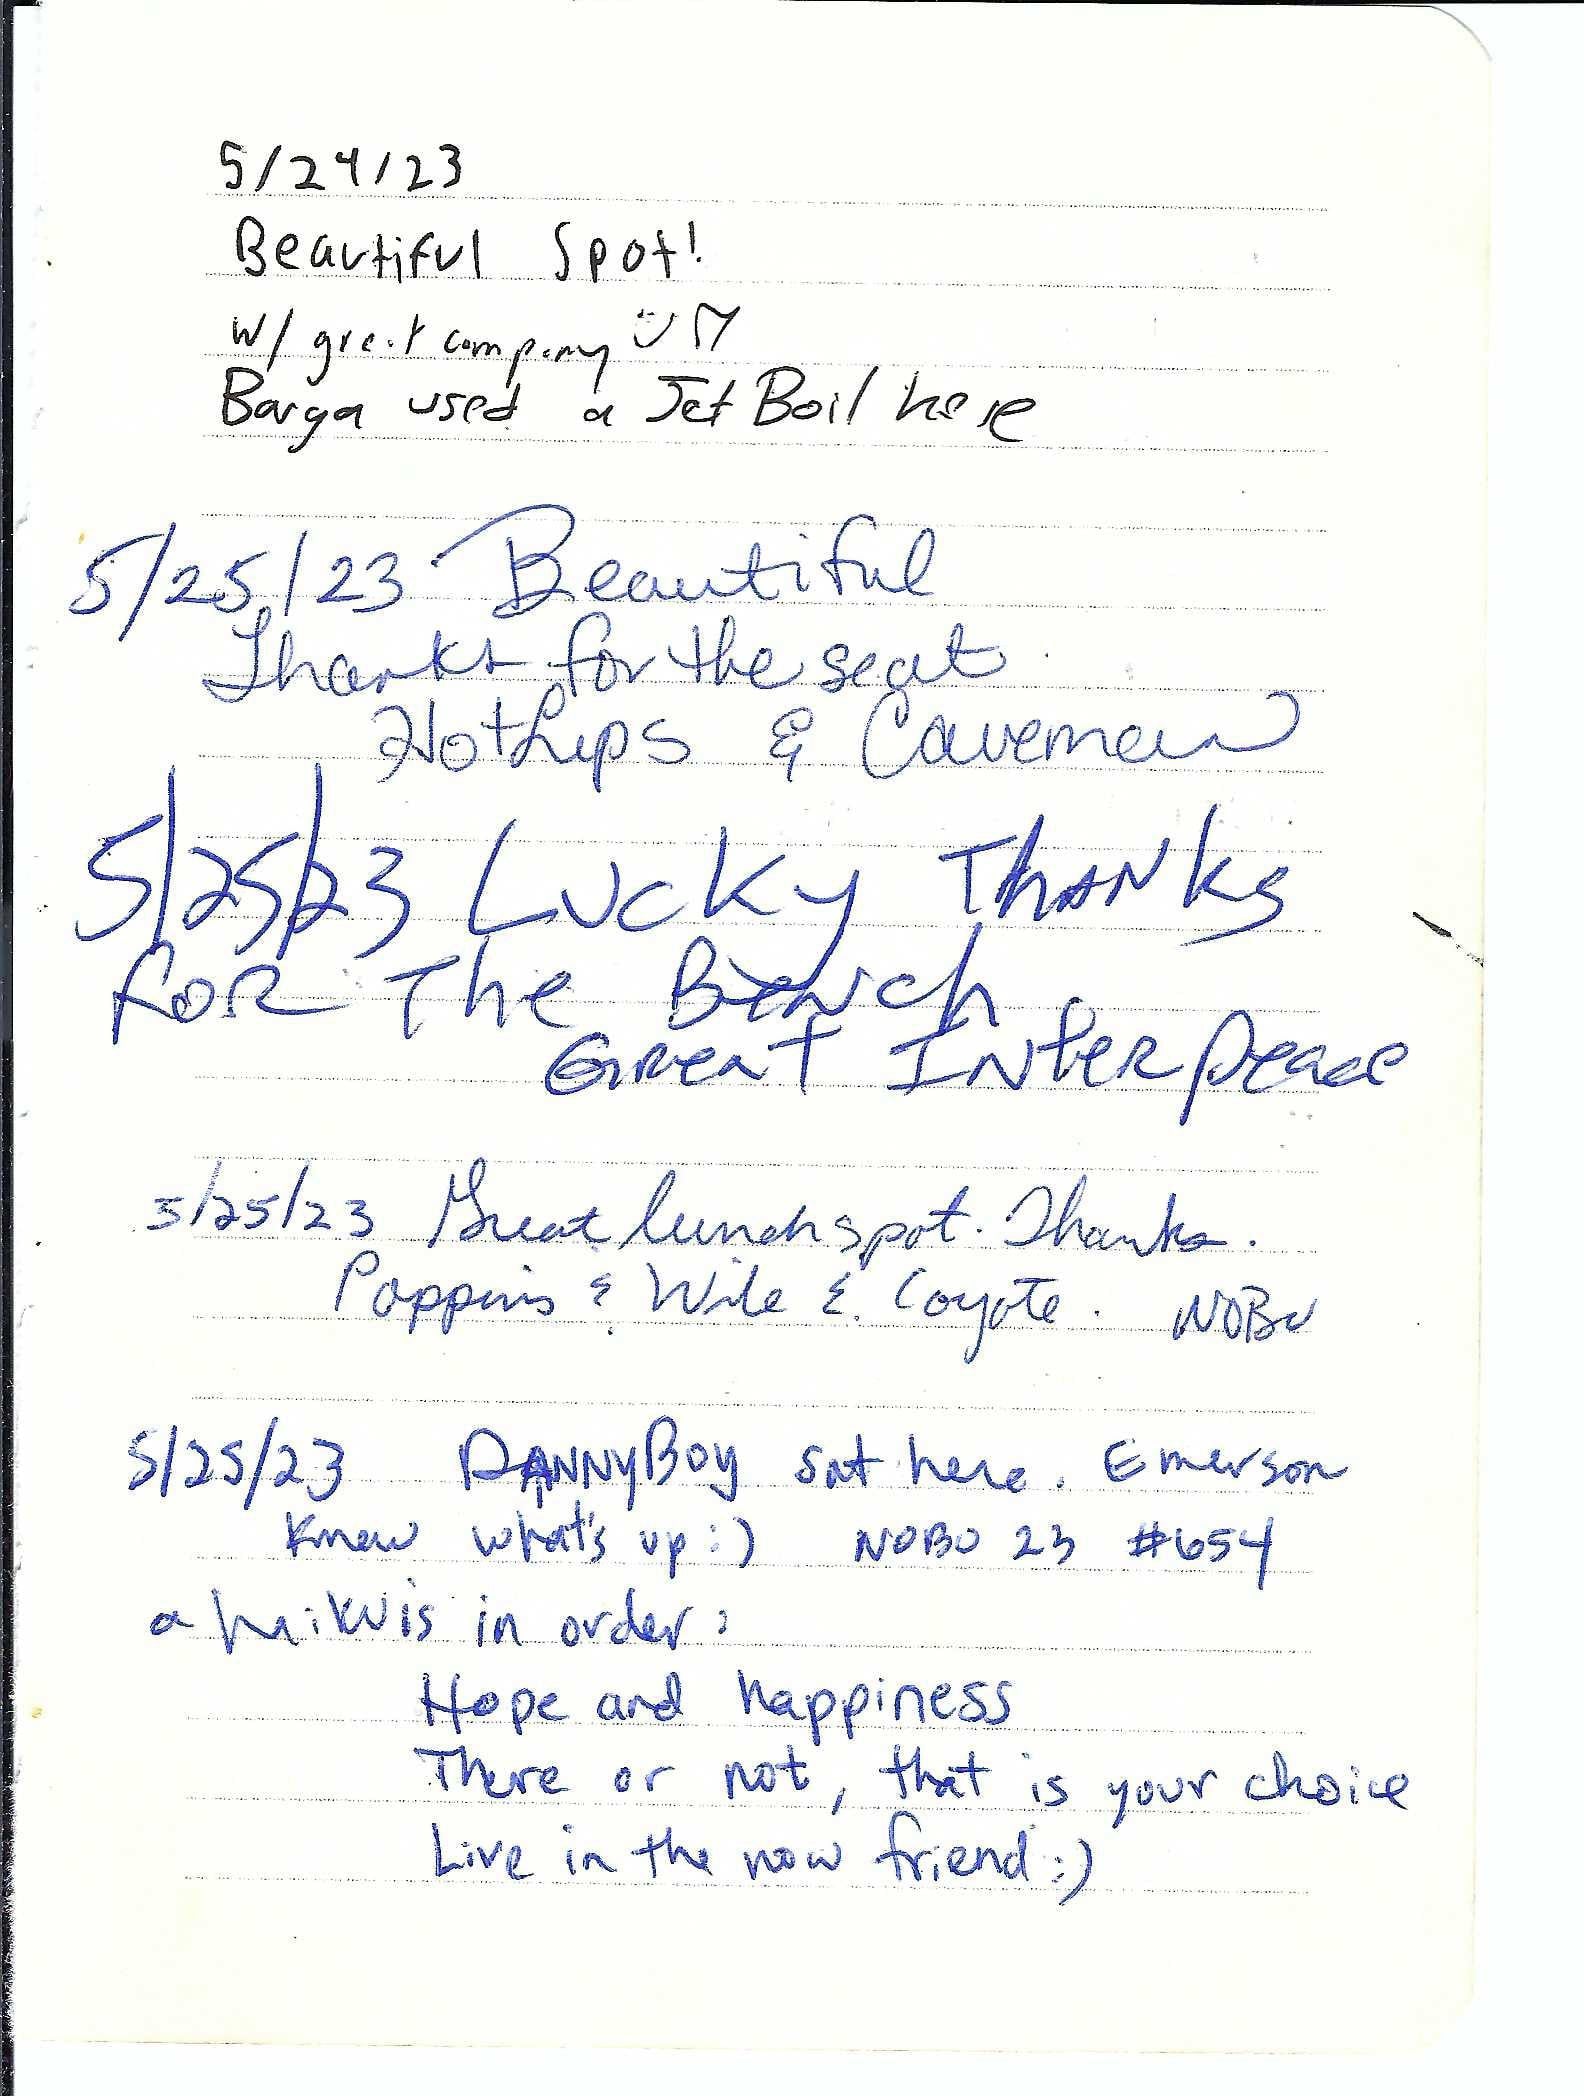 5/24/23
Beautiful Spot!
w/ great company
Barga used a Jet Boil here
5/25/23 Beautiful
Thanks for the seat
HotLips & Caveman
5/25/23 Lucky Thanks
for The Bench
Great Inter peace
5/25/23 Great lunch spot. Thanks.
Poppins & Wile E. Coyote. NOBO
5/25/23 DANNYBOY sat here. Emerson
knew what's up :) NOBO 23 #654
a haiku is in order:
Hope and happiness
There or not, that is your choice
Live in the now friend :)